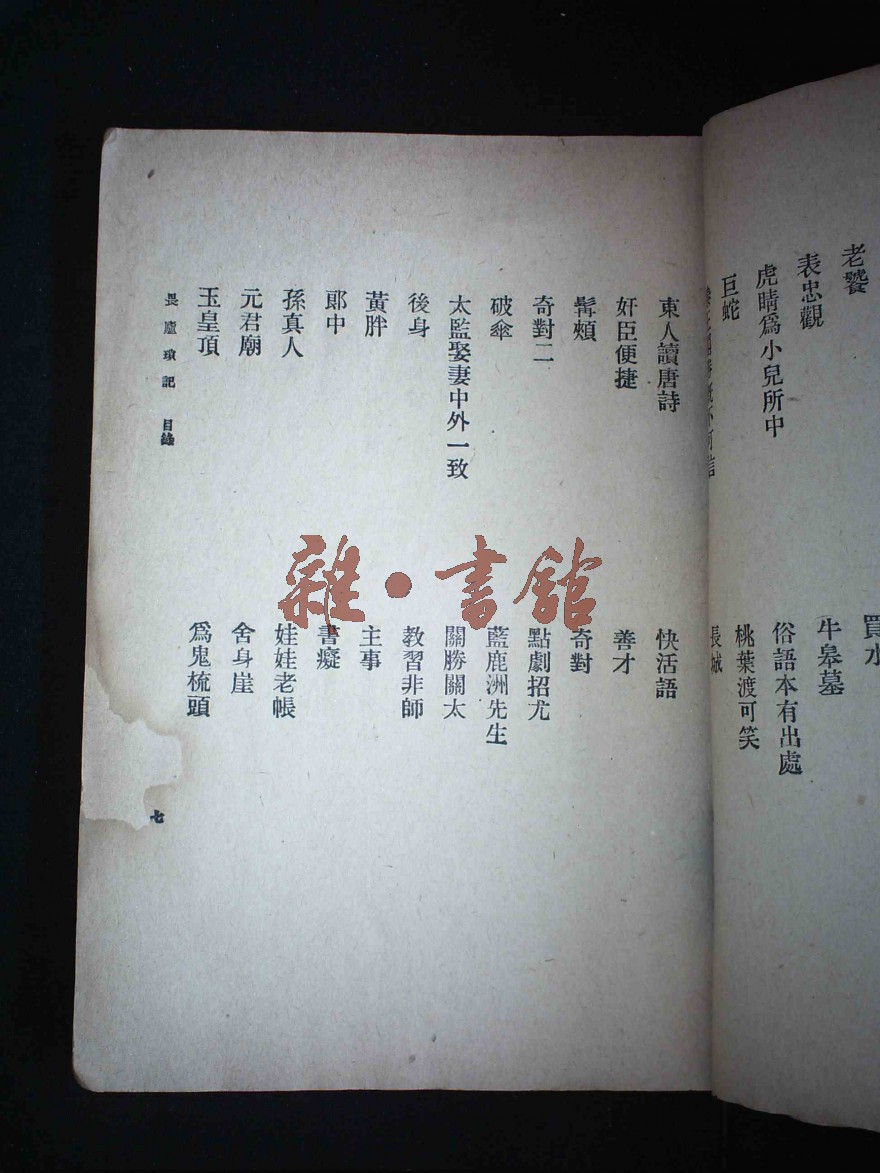 老饕
買水
表忠觀
牛皋墓
虎睛爲小兒所中
俗語本有出處
巨蛇
桃葉渡可笑
長城
東人讀唐詩
快活語
奸臣便捷
善才
髯頰
奇對
奇對二
點劇招尤
破傘
藍鹿洲先生
太監娶妻中外一致
關勝關太
後身
教習非師
黃胖
主事
郞中
書癡
孫真人
娃娃老帳
元君廟
舍身崖
玉皇頂
爲鬼梳頭
畏廬瑣記 目錄
七
雜·書館